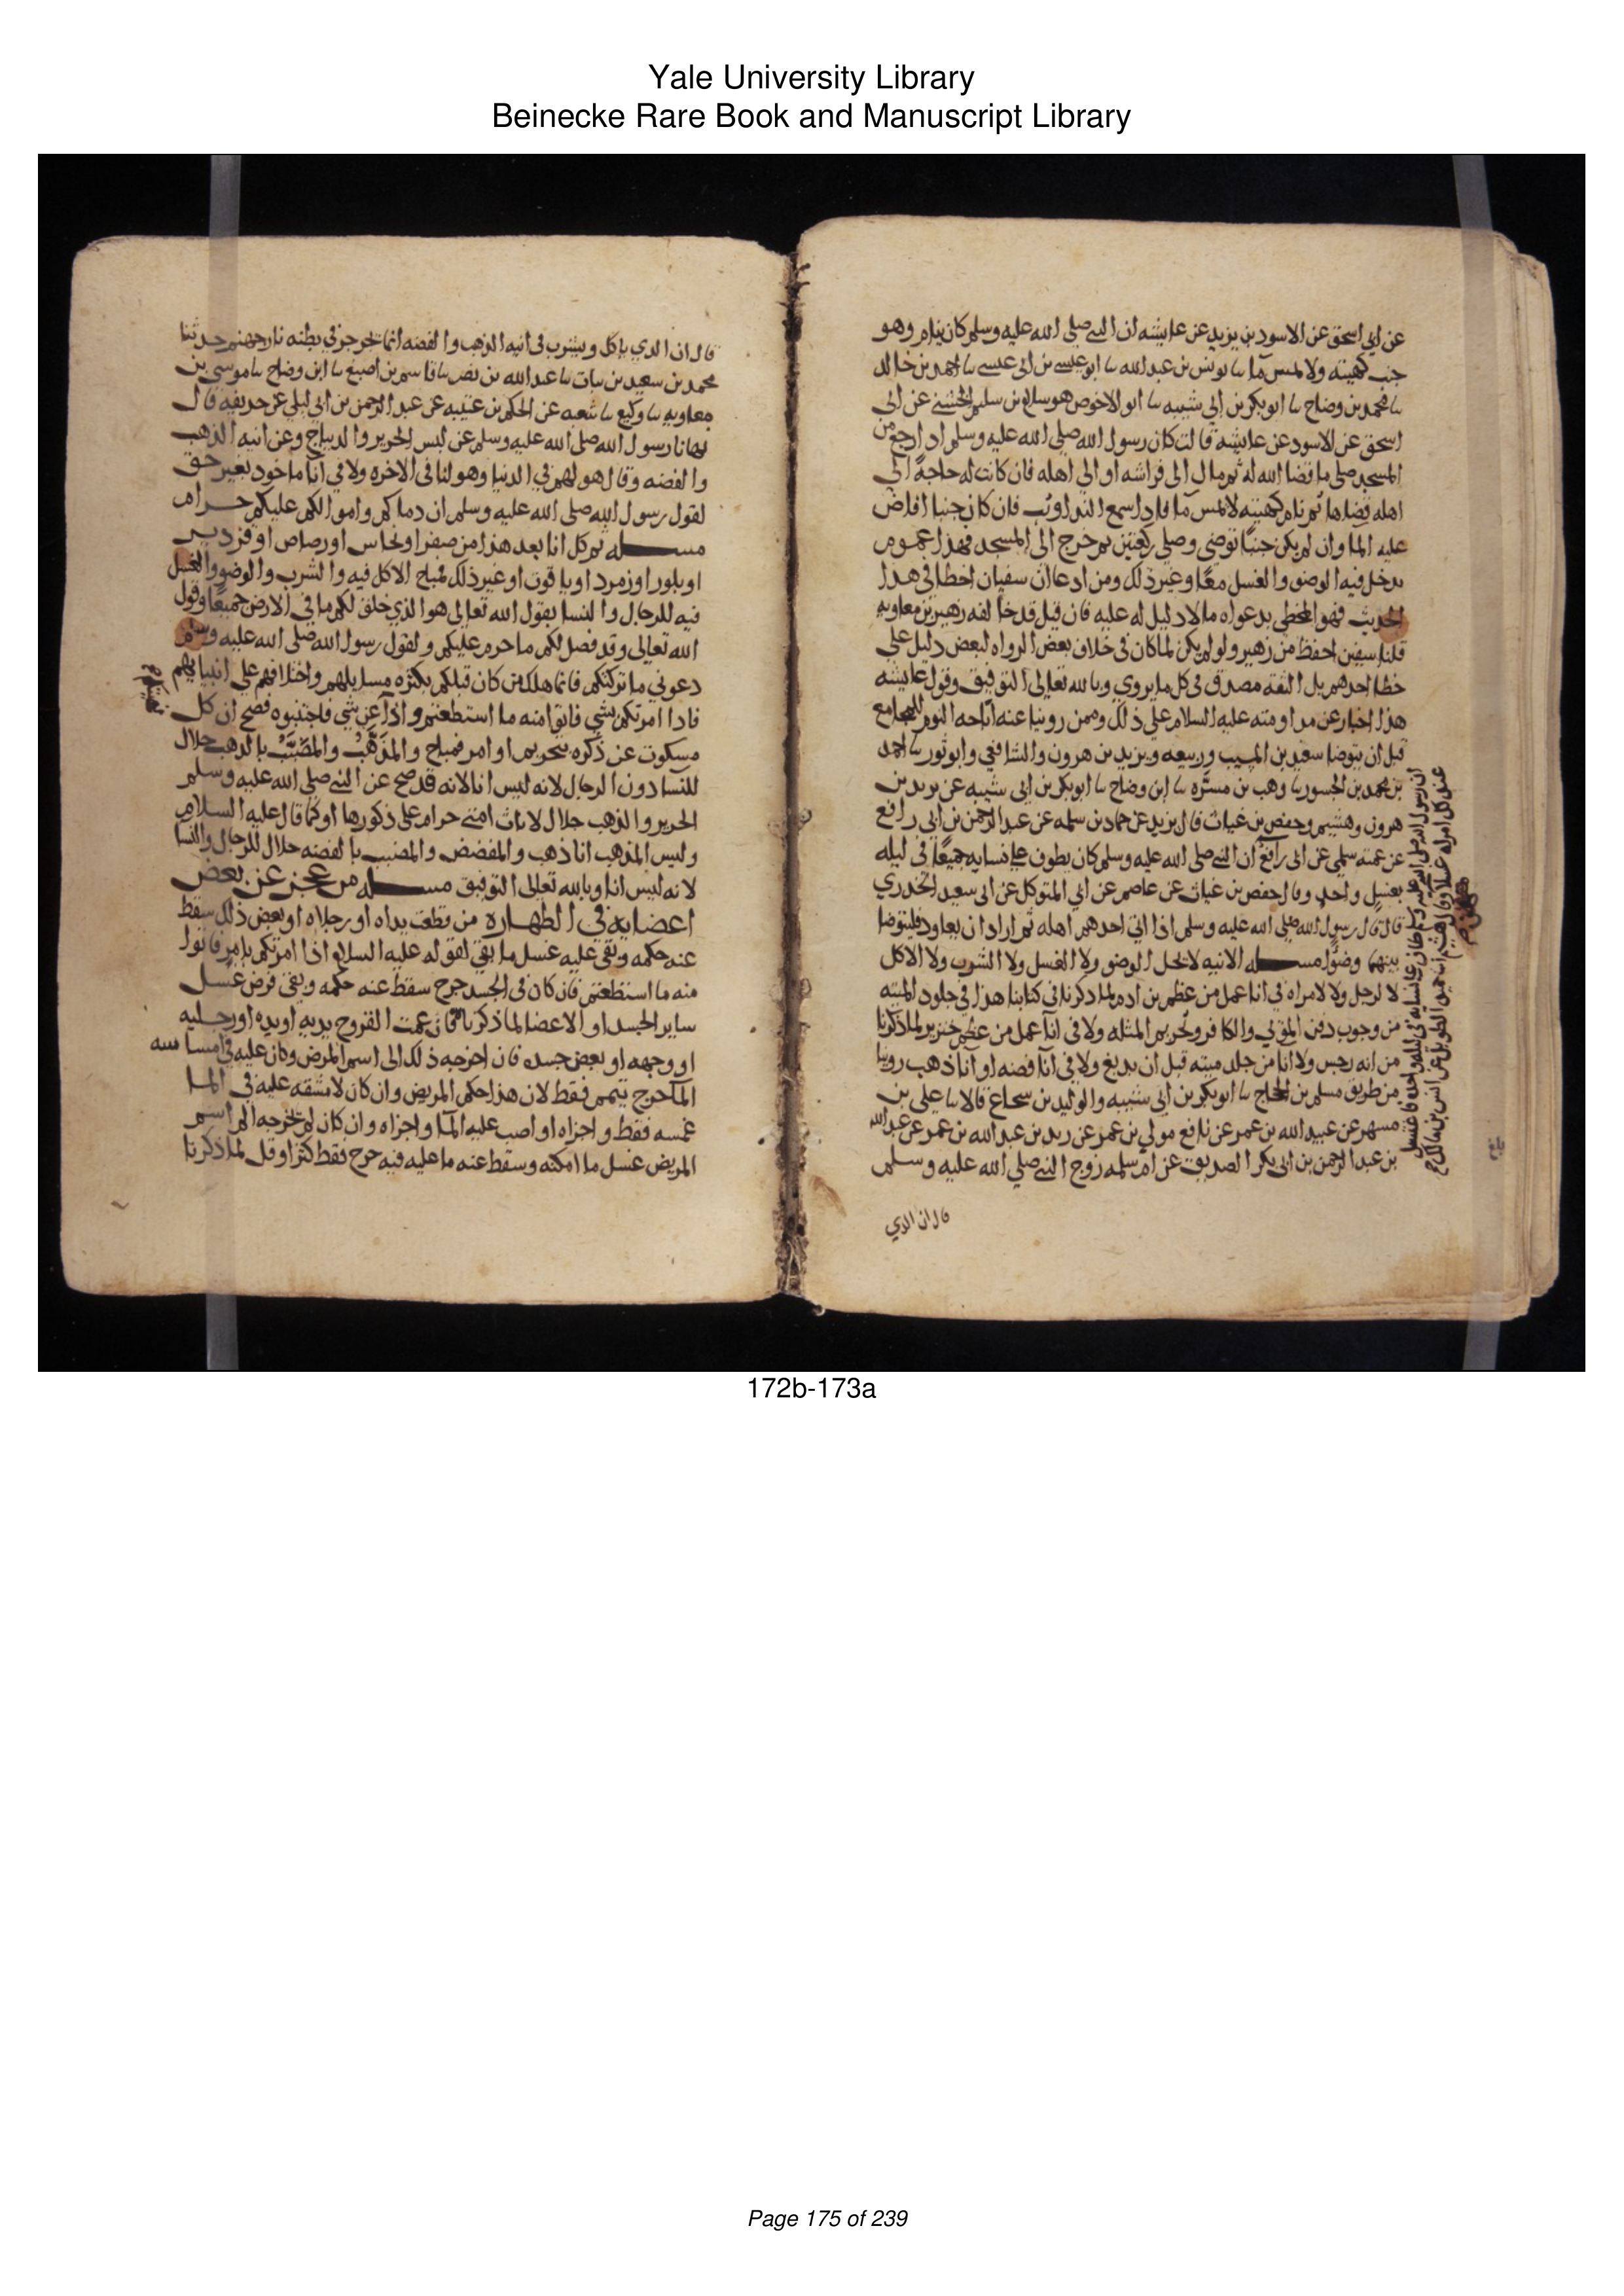 Yale University Library
Beinecke Rare Book and Manuscript Library
عن ابي اسحق عن الاسود بن يزيد عن عايشه ان النبي صلى الله عليه وسلم كان ينام وهو
جنب كهيته ولا يمس ما ىا يونس بن عبد الله ىا ابو عيسى بن ابي عيسى ىا احمد بن خالد
ىا محمد بن وضاح ىا ابو بكر بن ابي شيبه ىا ابو الاخوص هو سلام بن سليم الحنفي عن ابي
اسحق عن الاسود عن عايشه قالت كان رسول الله صلى الله عليه وسلم اذا رجع من
المسجد صلى ما قضا الله له ثم مال الى فراشه او الى اهله فان كانت له حاجة الي
اهله قضاها ثم نام كهيته لا يمس ما فاذا سمع الندا وثب فان كان جنبا افاض
عليه الما وان لم يكن جنبًا توضى وصلى ركعتين ثم خرج الى المسجد فهذا عموم
يدخل فيه الوضو والغسل معًا وغير ذلك ومن ادعا ان سفيان اخطا في هذا
الحديث فهو المخطي بدعواه ما لا دليل له عليه فان قيل قد خالفه زهير بن معاويه
قلنا سفين احفظ من زهير ولو لم يكن لما كان في خلاف بعض الرواه لبعض دليل على
خطا احدهم بل الثقه مصدق في كل ما يروي وبالله تعالى التوفيق وقول عايشه
هذا اخبار عن مداومته عليه السلام على ذلك وممن روينا عنه اباحه النوم للمجامع
قبل ان يتوضا سعيد بن المسيب وربيعه ويزيد بن هرون والشافعي وابو ثور ىا احمد
بن محمد بن الجسور ىا وهب بن مسرّه ىا ابن وضاح ىا ابو بكر بن ابي شيبه عن يزيد بن
هرون وهشيم وحفص بن غياث قال يزيد عن حماد بن سلمه عن عبد الرحمن بن ابي رافع
عن عمته سلمي عن ابي رافع ان النبي صلى الله عليه وسلم كان يطوف على نسايه جميعًا في ليله
بغسل واحد وقال حفص بن غياث عن عاصم عن ابي المتوكل عن ابي سعيد الخدري
قال قال رسول الله صلى الله عليه وسلم اذا اتي احدهم اهله ثم اراد ان يعاود فليتوضا
بينهما وضوًا مسله الانيه لا يحل الوضو ولا الغسل ولا الشرب ولا الاكل
لا لرجل ولا لامراه في انا عمل من عظم بن ادم لما ذكرنا في كتابنا هذا في جلود الميته
من وجوب دفن الموتي والكافر وتحريم المثله ولا في انا عمل من عظم خنزير لما ذكرنا
من انه رجس ولا انا من جلد ميته قبل ان يدبغ ولا في انا فضه او انا ذهب روينا
من طريق مسلم بن الحجاج ىا ابو بكر بن ابي شيبه والوليد بن شجاع قالا ىا علي بن
مسهر عن عبيد الله بن عمر عن نافع مولي بن عمر عن زيد بن عبد الله بن عمر عن عبد الله
بن عبد الرحمن بن ابي بكر الصديق عن ام سلمه زوج النبي صلى الله عليه وسلم
قال ان الذي
قال ان الذي ياكل ويشرب في انيه الذهب والفضه انما يجرجر في بطنه نار جهنم حدثنا
محمد بن سعيد بن نبات ىا عبد الله بن نصر ىا قاسم بن اصبغ ىا ابن وضاح ىا موسى بن
معاويه ىا وكيع ىا شعبه عن الحكم بن عتيبه عن عبد الرحمن بن ابي ليلي عن حذيفه قال
نهانا رسول الله صلى الله عليه وسلم عن لبس الحرير والديباج وعن انيه الذهب
والفضه وقال هو لهم في الدنيا وهو لنا في الاخره ولا في انا ماخوذ بغير حق
لقول رسول الله صلى الله عليه وسلم ان دماكم واموالكم عليكم حرام
مسله ثم كل انا بعد هذا من صفر او نحاس او رصاص او قزدير
او بلور او زمرد او ياقوت او غير ذلك فمباح الاكل فيه والشرب والوضو والغسل
فيه للرجال والنسا بقول الله تعالى هو الذي خلق لكم ما في الارض جميعًا وقول
الله تعالى وقد فصل لكم ما حرم عليكم ولقول رسول الله صلى الله عليه وسلم
دعوني ما تركتكم فانما هلك من كان قبلكم بكثره مسايلهم واختلافهم على انبيايهم
فاذا امرتكم بشي فاتوا منه ما استطعتم واذا عن شي فاجتنبوه فصح ان كل
مسكوت عن ذكره بتحريم او امر فمباح والمذَهَّبُ والمضَبَّبُ بالذهب حلال
للنسا دون الرجال لانه ليس انا لانه قد صح عن النبي صلى الله عليه وسلم
الحرير والذهب حلال لاناث امتي حرام على ذكورها او كما قال عليه السلام
وليس المذهب انا ذهب والمفضض والمضبب بالفضه حلال للرجال والنسا
لانه ليس انا وبالله تعالى التوفيق مسله من عجز عن بعض
اعضايه في الطهاره من قطعت يداه او رجلاه او بعض ذلك سقط
عنه حكمه وبقي عليه غسل ما بقي لقوله عليه السلام اذا امرتكم بامر فاتوا
منه ما استطعتم فان كان في الجسد جرح سقط عنه حكمه وبقي فرض غسل
ساير الجسد او الاعضا لما ذكرنا فان عمت القروح يديه او يده او رجليه
او وجهه او بعض جسده فان اخرجه ذلك الى اسم المرض وكان عليه في امساسه
الما حرج تيمم فقط لان هذا حكم المريض وان كان لا مشقه عليه في الما
غمسه فقط واجزاه او اصب عليه الما واجزاه وان كان لم يخرجه الى اسم
المريض غسل ما امكنه وسقط عنه ما عليه فيه حرج فقط كثر او قل لما ذكرنا
172b-173a
Page 175 of 239